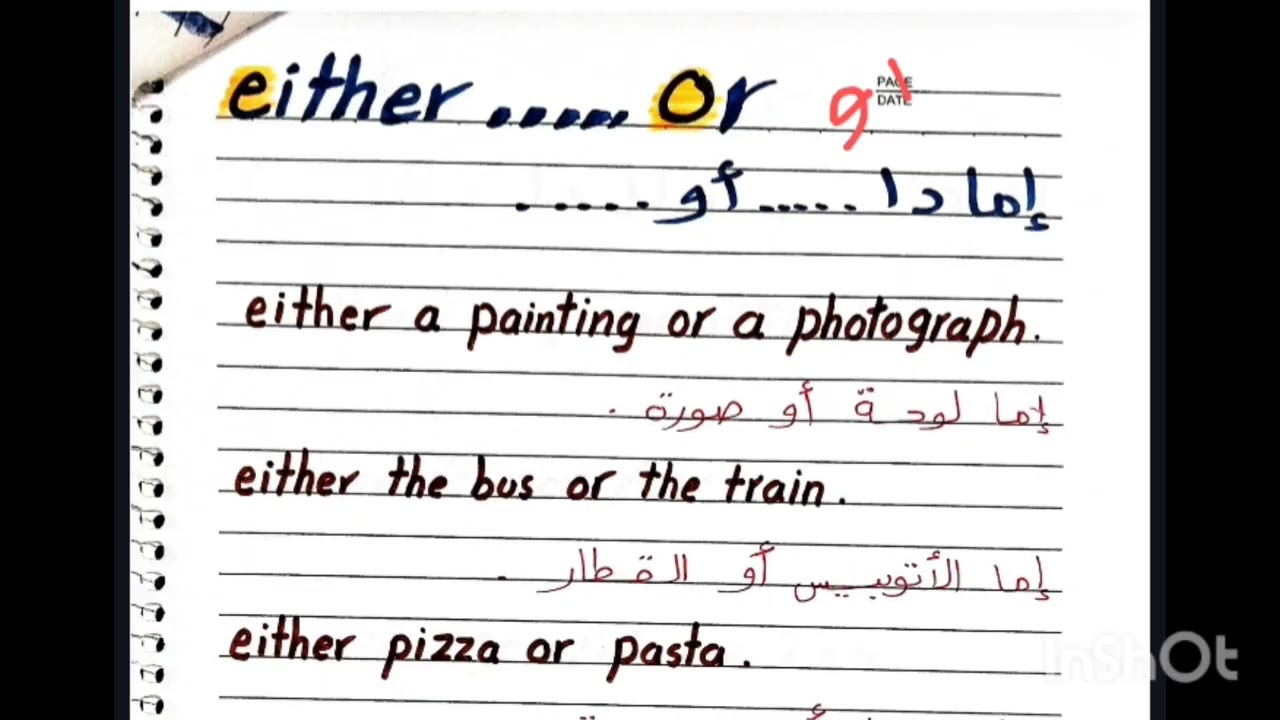 either ...... Or
PAGE
DATE
إما دا ..... أو ......
either a painting or a photograph.
إما لوحة أو صورة .
either the bus or the train .
إما الأتوبيس أو القطار .
either pizza or pasta .
InShOt